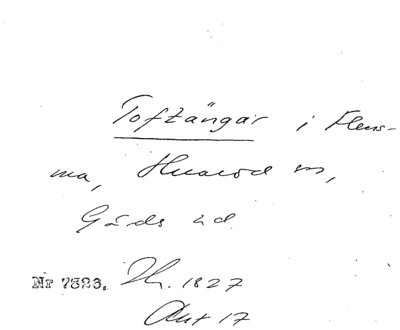 Toftängar i Flens-
ma, Huaröd sn,
Gärds hd
Nr 7823. Th. 1827
Akt 17